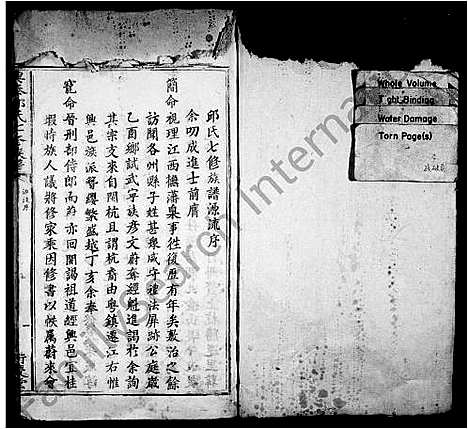 邱氏七修族譜源流序
余叨成進士前膺
簡命視理江西撫藩臬事徃復歷有年矣敷治之餘
訪聞各州縣子姓甚衆咸守禮法屏跡公庭嵗
乙酉鄉試武寧族彦文蔚奪經魁進謁于余詢
其宗支來自閩杭且謂杭裔由粤鎮遷江右惟
興邑族派瞽纓繁盛越丁亥余奉
寵命晉刑部侍郎高
回閩謁祖道經興邑
時族人議將修家乘因修書以候属蔚來會
Whole Volume
Tight Binding
Water Damage
Torn Page(s)
FamilySearch International